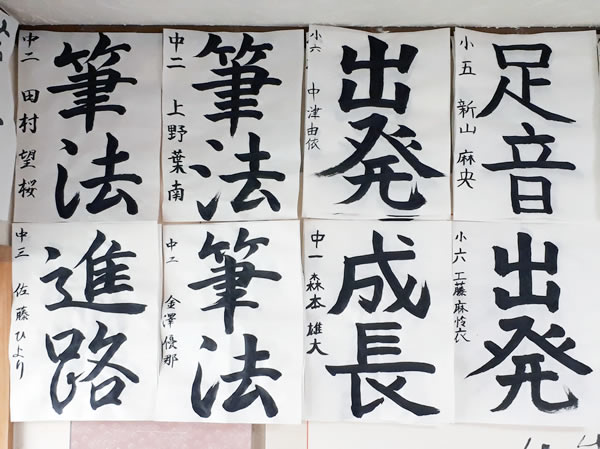 足音
小五 新山麻央
出発
小六 中津由依
筆法
中二 上野葉南
筆法
中二 田村望桜
出発
小六 工藤麻怜衣
成長
中一 森本雄大
筆法
中二 金澤優那
進路
中三 佐藤ひより